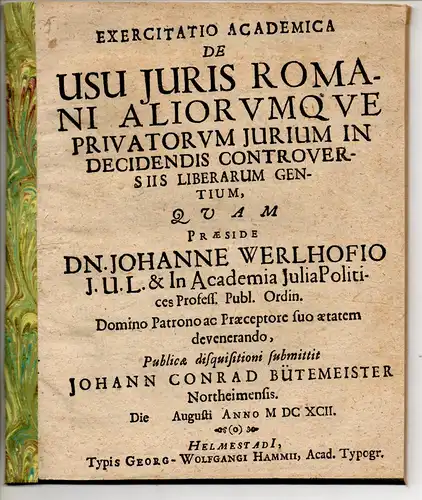 EXERCITATIO ACADEMICA
DE
USU JURIS ROMA-
NI ALIORVMQVE
PRIVATORVM JURIUM IN
DECIDENDIS CONTROVER-
SIIS LIBERARUM GEN-
TIUM,
QVAM
PRÆSIDE
DN. JOHANNE WERLHOFIO
J. U. L. & In Academia Julia Politi-
ces Profess. Publ. Ordin.
Domino Patrono ac Præceptore suo ætatem
devenerando,
Publicæ disquisitioni submittit
JOHANN CONRAD BÜTEMEISTER
Northeimensis.
Die Augusti ANNO M DC XCII.
(o)
HELMESTADI,
Typis GEORG-WOLFGANGI HAMMII, Acad. Typogr.